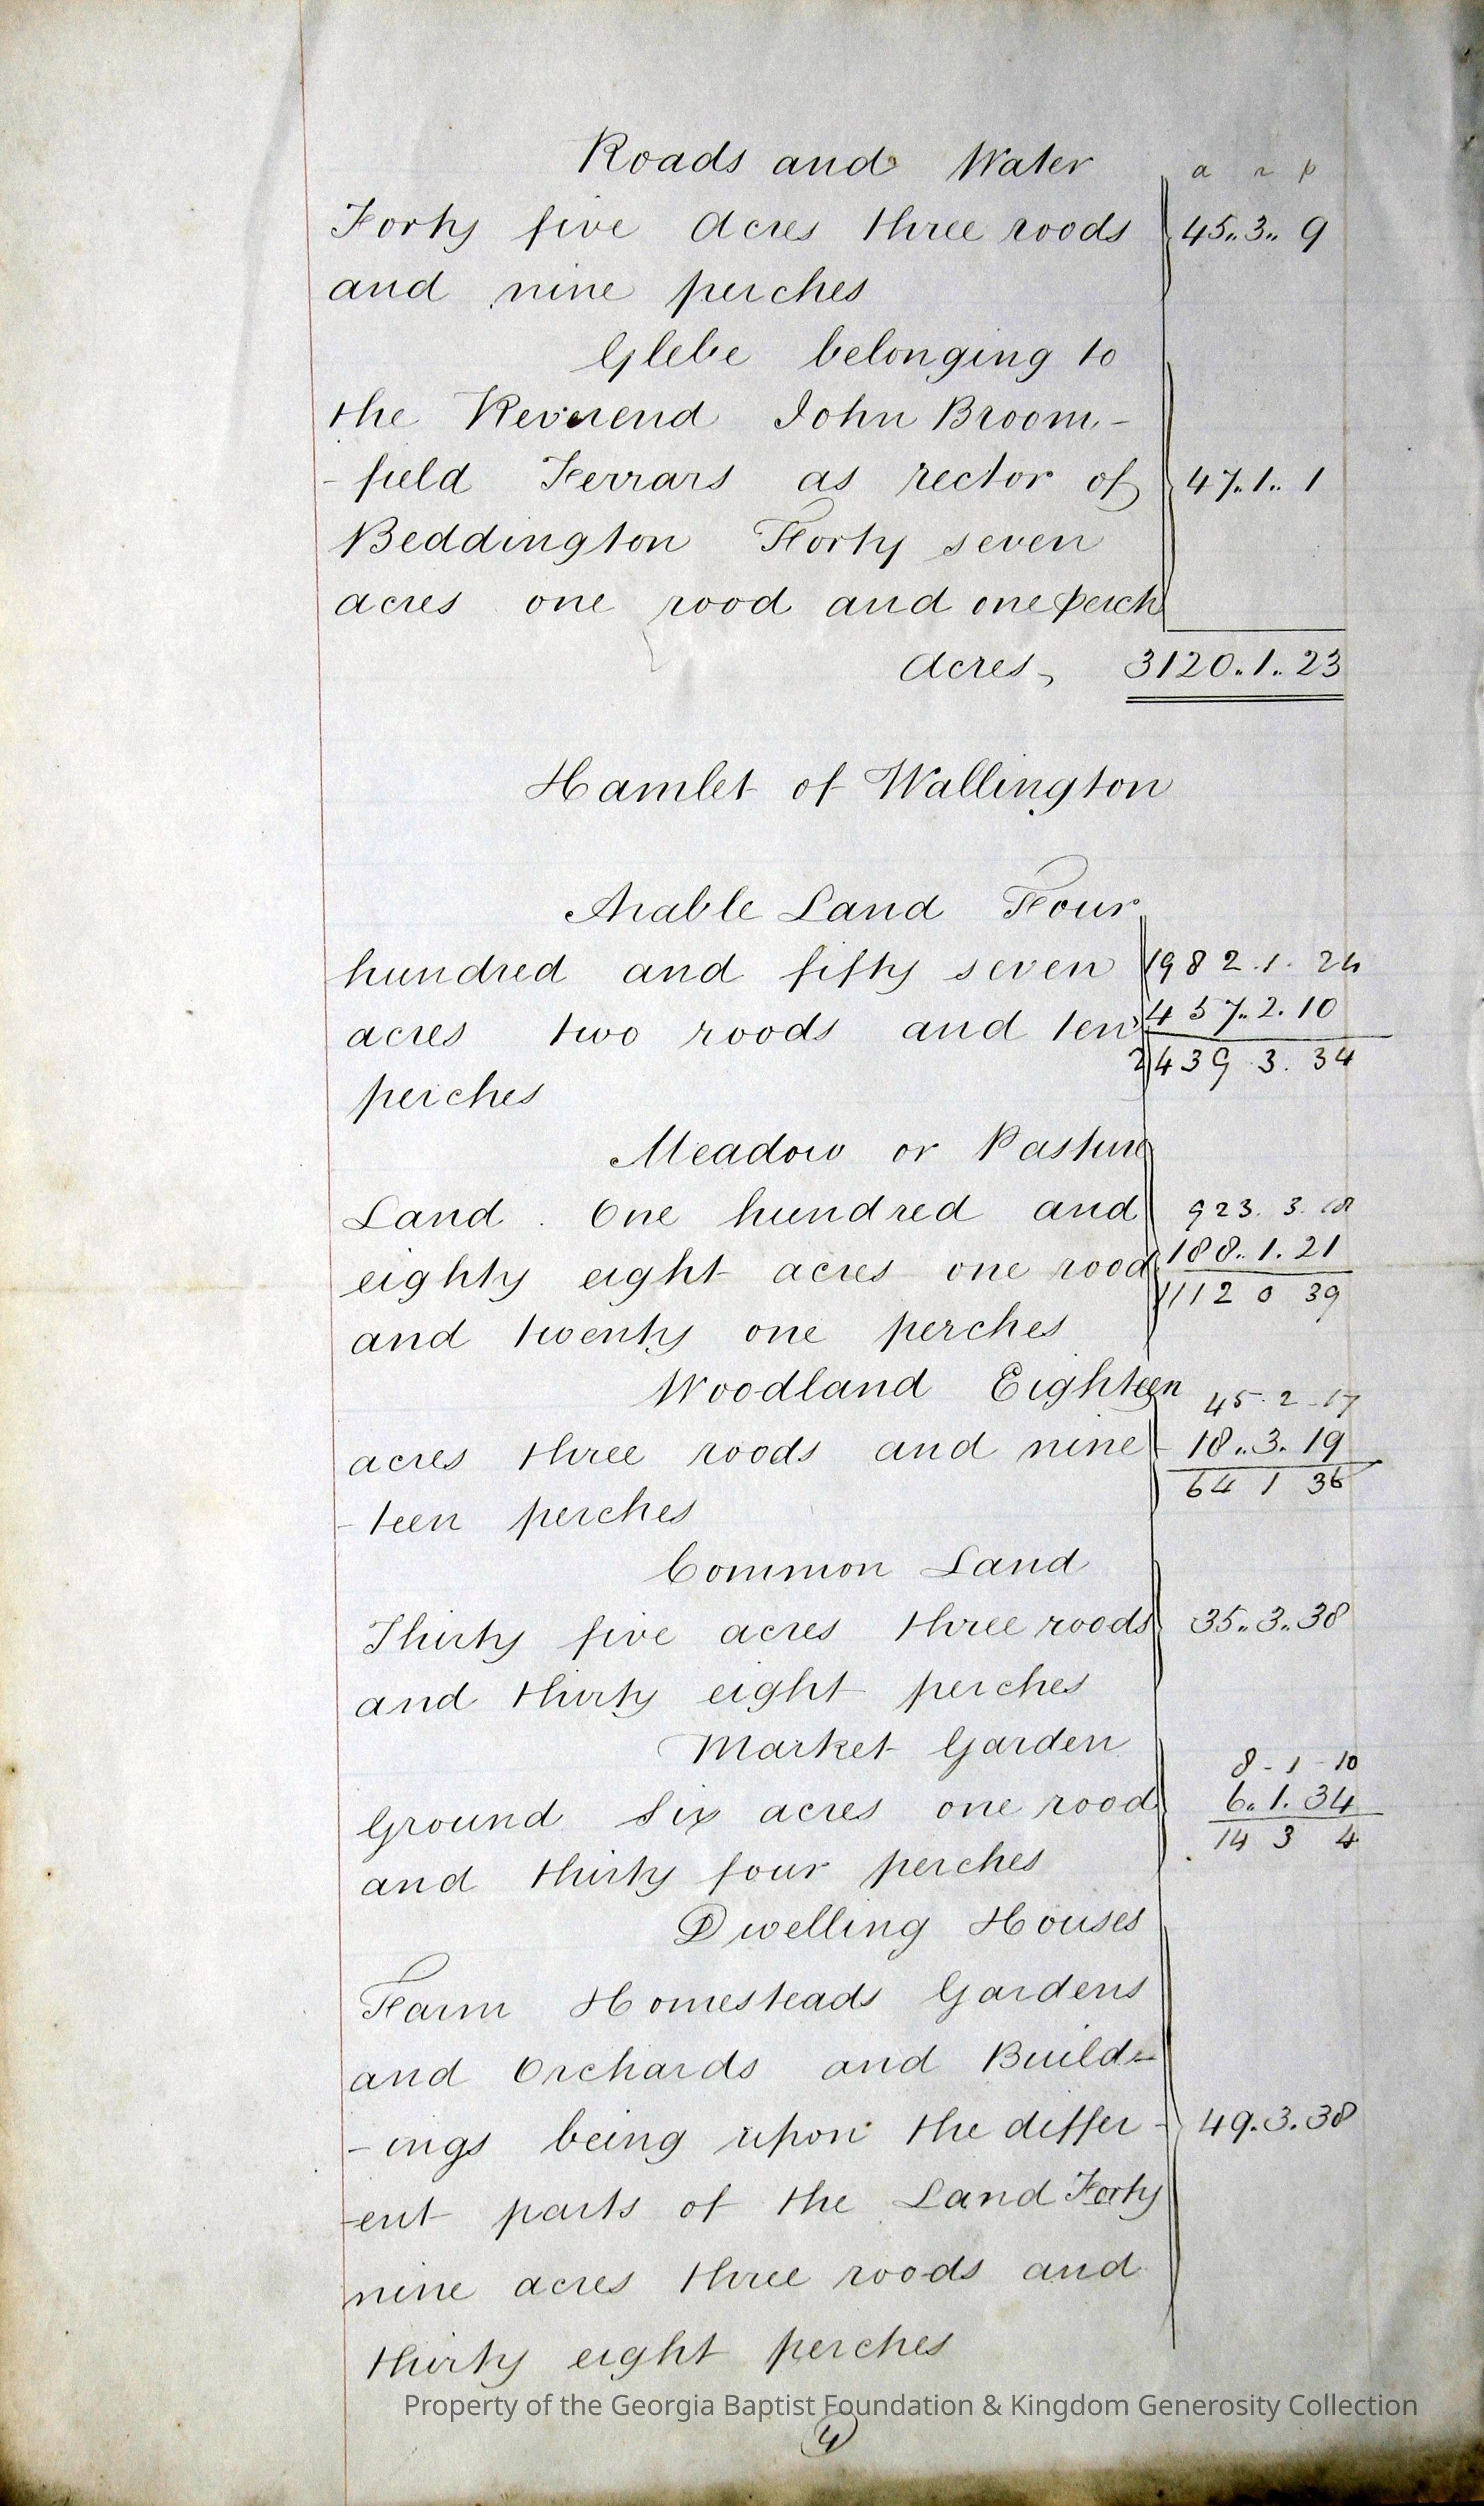 Roads and Water a r p
Forty five Acres three roods 45.. 3.. 9
and nine perches
Glebe belonging to
the Reverend John Broom-
-field Ferrars as rector of 47.. 1.. 1
Beddington Forty seven
acres one rood and one perch
Acres, 3120.. 1.. 23
Hamlet of Wallington
Arable Land Four
hundred and fifty seven 1982. 1. 24
acres two roods and ten 457.. 2. 10
2439 3. 34
perches
Meadow or Pasture
Land . One hundred and 923. 3. 18
eighty eight acres one rood 188.. 1. 21
1112 0 39
and twenty one perches
Woodland Eighteen 45 - 2 - 17
acres three roods and nine 18.. 3. 19
64 1 36
-teen perches
Common Land
Thirty five acres three roods 35.. 3.. 38
and thirty eight perches
Market Garden 8 - 1 - 10
Ground Six acres one rood 6.. 1. 34
14 3 4
and thirty four perches
Dwelling Houses
Farm Homesteads Gardens
and Orchards and Build-
-ings being upon the differ- 49. 3. 38
-ent parts of the Land Forty
nine acres three roods and
thirty eight perches
Property of the Georgia Baptist Foundation & Kingdom Generosity Collection
4